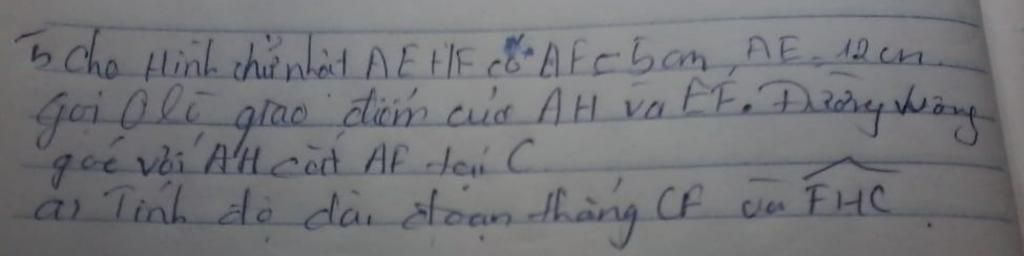 5 Cho Hình chữ nhật AEHF có AF = 5 cm, AE = 12 cm.
Gọi O là giao điểm của AH và EF. Đường vuông
góc với AH cắt AF tại C
a) Tính độ dài đoạn thẳng CF và FHC